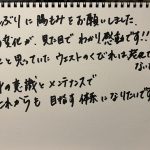 ぶりに腸もみをお願いしました
変化が、見た目でわかり感動です!!
と思っていたウエストのくびれは
の意識とメンテナンスで
これからも目指す体系になりたいです